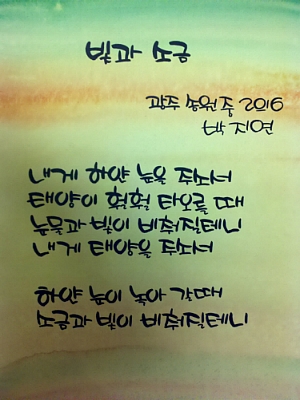 빛과 소금
광주 송원중 2016
박지연
내게 하얀 눈을 주소서
태양이 훨훨 타오를 때
눈물과 빛이 비춰질테니
내게 태양을 주소서
하얀 눈이 녹아 갈때
소금과 빛이 비춰질테니